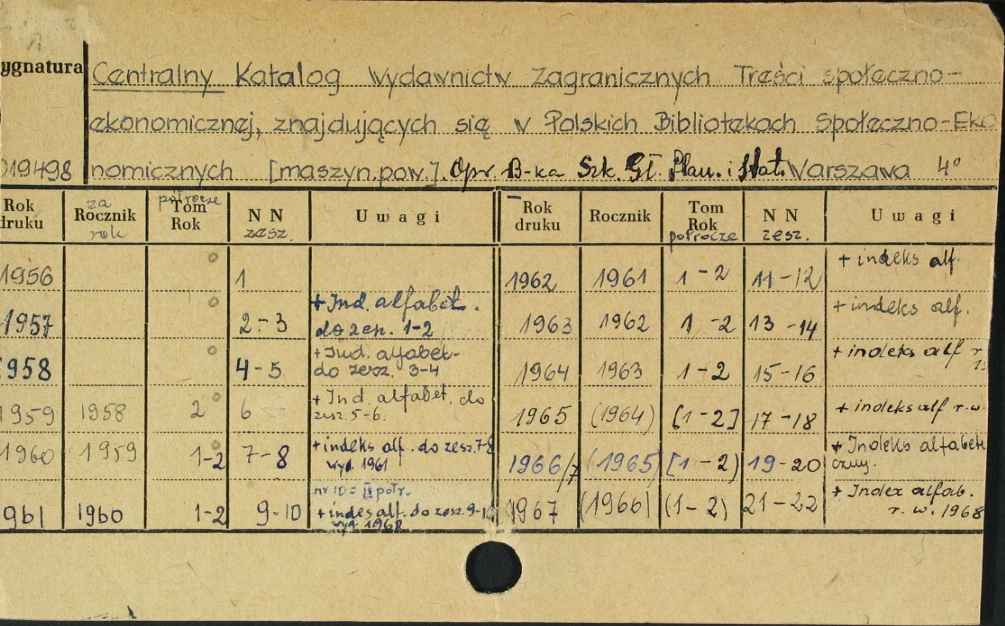 ygnatura Centralny Katalog Wydawnictw Zagranicznych Treści społeczno-
ekonomicznej, znajdujących się w Polskich Bibliotekach Społeczno-Eko
019498 nomicznych [maszyn.pow.]. Opr. B-ka Szk. Gł. Plan. i Stat. Warszawa 4°
Rok druku za Rocznik rok półrocze Tom Rok N N zesz. Uwagi Rok druku Rocznik Tom Rok półrocze N N zesz. Uwagi
1956 1 1962 1961 1-2 11-12 + indeks alf.
1957 2-3 + Ind. alfabet. do zesz. 1-2 1963 1962 1-2 13-14 + indeks alf.
1958 4-5 + Ind. alfabet. do zesz. 3-4 1964 1963 1-2 15-16 + indeks alf
1959 1958 2 6 + Ind. alfabet. do zesz. 5-6. 1965 (1964) [1-2] 17-18 + indeks alf r.w.
1960 1959 1-2 7-8 + indeks alf. do zesz. 7-8 wyd. 1961 1966/7 (1965) [1-2) 19-20 + Indeks alfabetyczny.
961 1960 1-2 9-10 nr 10 = II półr. + indes alf. do zesz. 9-10 wyd. 1962 1967 (1966) (1-2) 21-22 + Index alfab. r.w. 1968